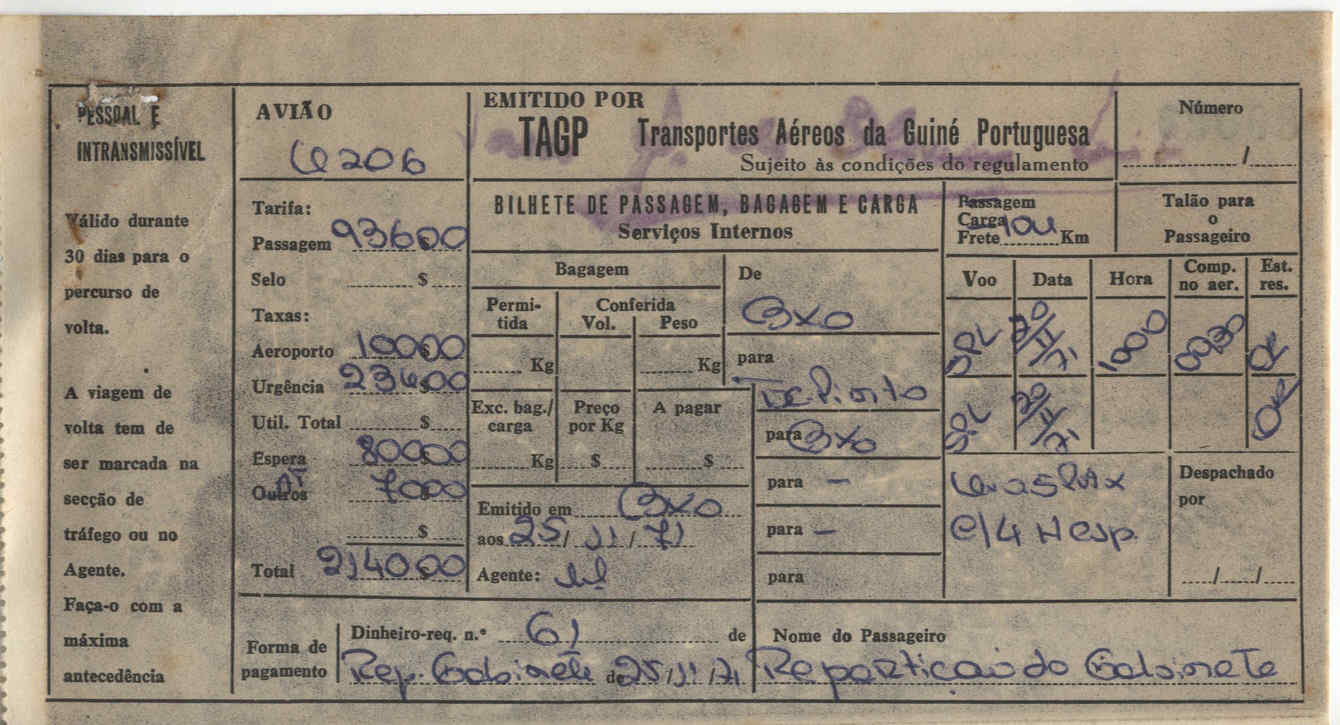 PESSOAL E
INTRANSMISSÍVEL
Válido durante
30 dias para o
percurso de
volta.
A viagem de
volta tem de
ser marcada na
secção de
tráfego ou no
Agente.
Faça-o com a
máxima
antecedência
AVIÃO
C206
Tarifa:
Passagem 93600
Selo $
Taxas:
Aeroporto 10000
Urgência 23400
Util. Total $
Espera 80000
Outros AT 7000
$
Total 214000
EMITIDO POR
TAGP Transportes Aéreos da Guiné Portuguesa
Sujeito às condições do regulamento
BILHETE DE PASSAGEM, BAGAGEM E CARGA
Serviços Internos
Bagagem
Permi-
tida
Conferida
Vol. Peso
Kg Kg
Exc. bag./
carga
Preço
por Kg
A pagar
Kg $ $
Emitido em BXO
aos 25/11/71
Agente:
De
BXO
para
T. Pinto
para BXO
para -
para -
para
Número
/
Passagem
Carga
Frete 104 Km
Talão para
o
Passageiro
Voo Data Hora Comp. no aer. Est. res.
SPL 30/11/71 1000 0930 OK
SPL 30/11/71 OK
c/4 H esp.
Despachado
por
/ /
Forma de
pagamento
Dinheiro-req. n.º 61 de
Rep. Gabinete de 25/11/71
Nome do Passageiro
Repartição do Gabinete